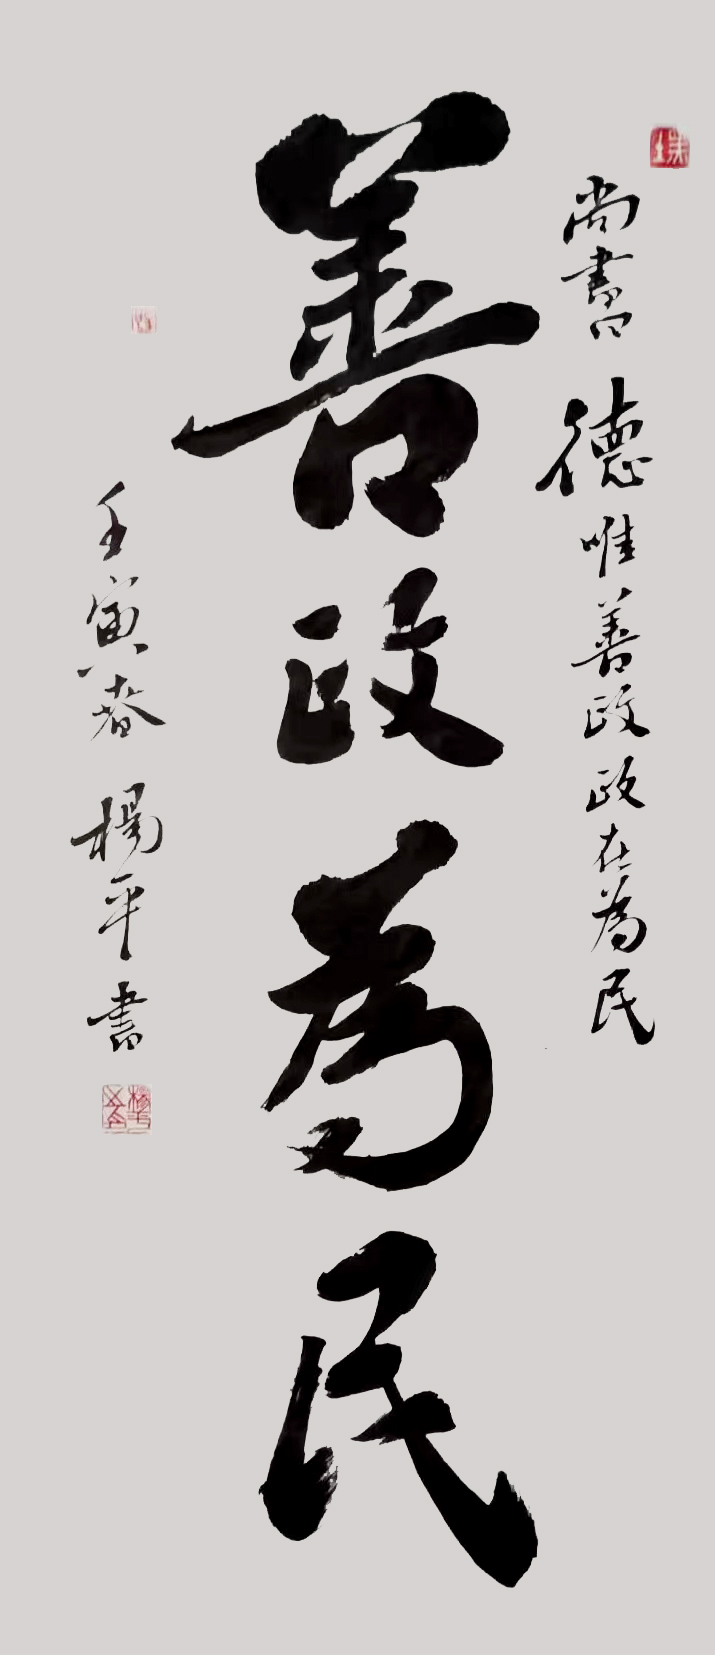 尚書曰德唯善政政在為民
善政為民
壬寅春楊平書